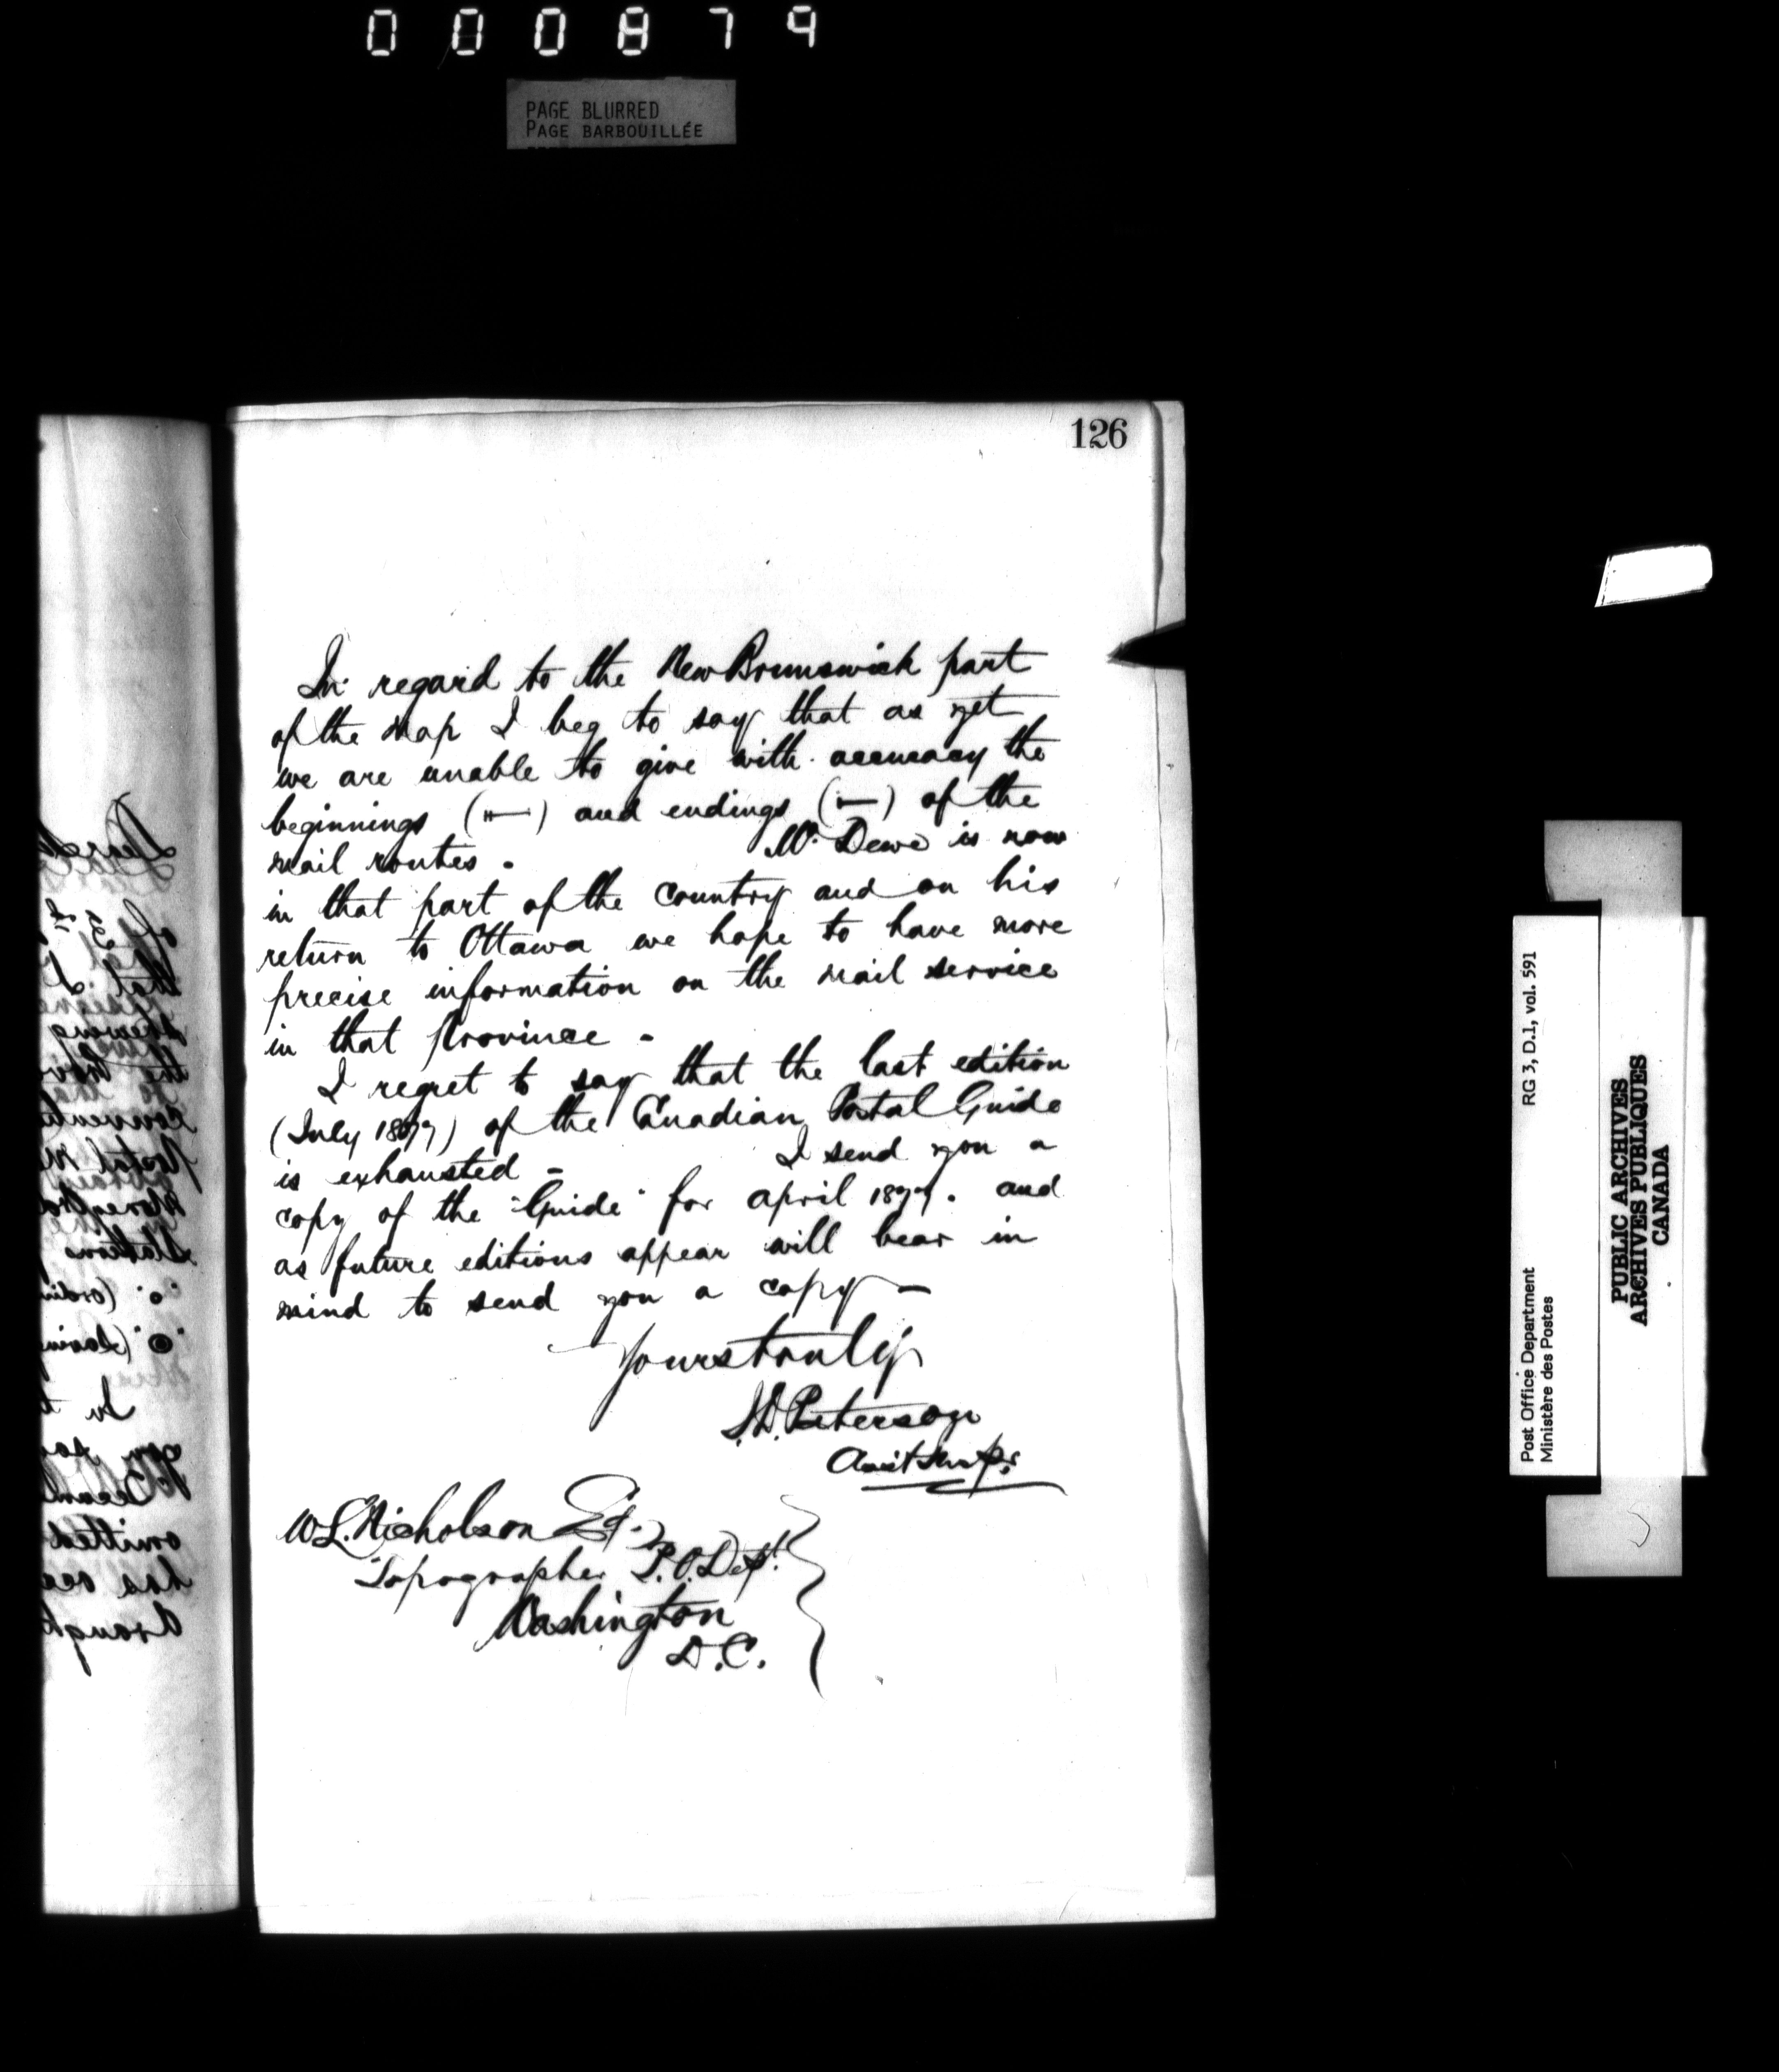 000879
PAGE BLURRED
PAGE BARBOUILLÉE
126
In regard to the New Brunswick part
of the map I beg to say that as yet
we are unable to give with accuracy the
beginnings ( ) and endings ( ) of the
mail routes - Mr. Dewe is now
in that part of the country and on his
return to Ottawa we hope to have more
precise information on the mail service
in that Province -
I regret to say that the last edition
(July 1877) of the Canadian Postal Guide
is exhausted - I send you a
copy of the "Guide" for april 1877. and
as future editions appear will bear in
mind to send you a copy -
Yours truly
Peterson
W.L. Nicholson Esq.
Topographer P.O. Dept.
Washington
D.C.
RG 3, D.1, vol. 591
Post Office Department
Ministère des Postes
PUBLIC ARCHIVES
ARCHIVES PUBLIQUES
CANADA